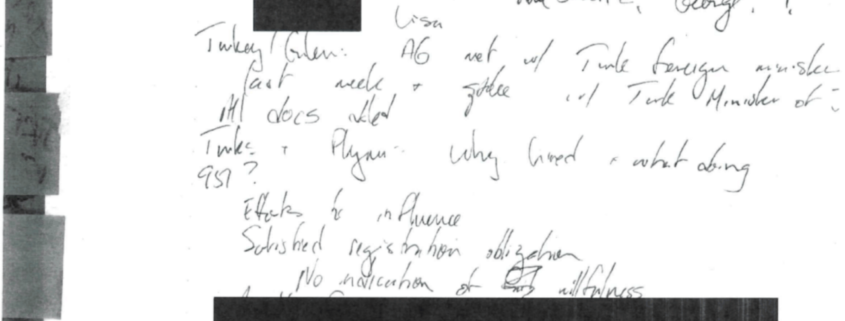 Lisa
Turkey/Gulen: AG met w/ Turk foreign minister
last week + w/ Turk Minister of
docs
Turks + Flynn: why hired + what doing
951?
Efforts to influence
Satisfied registration obligation
No indication of willfulness